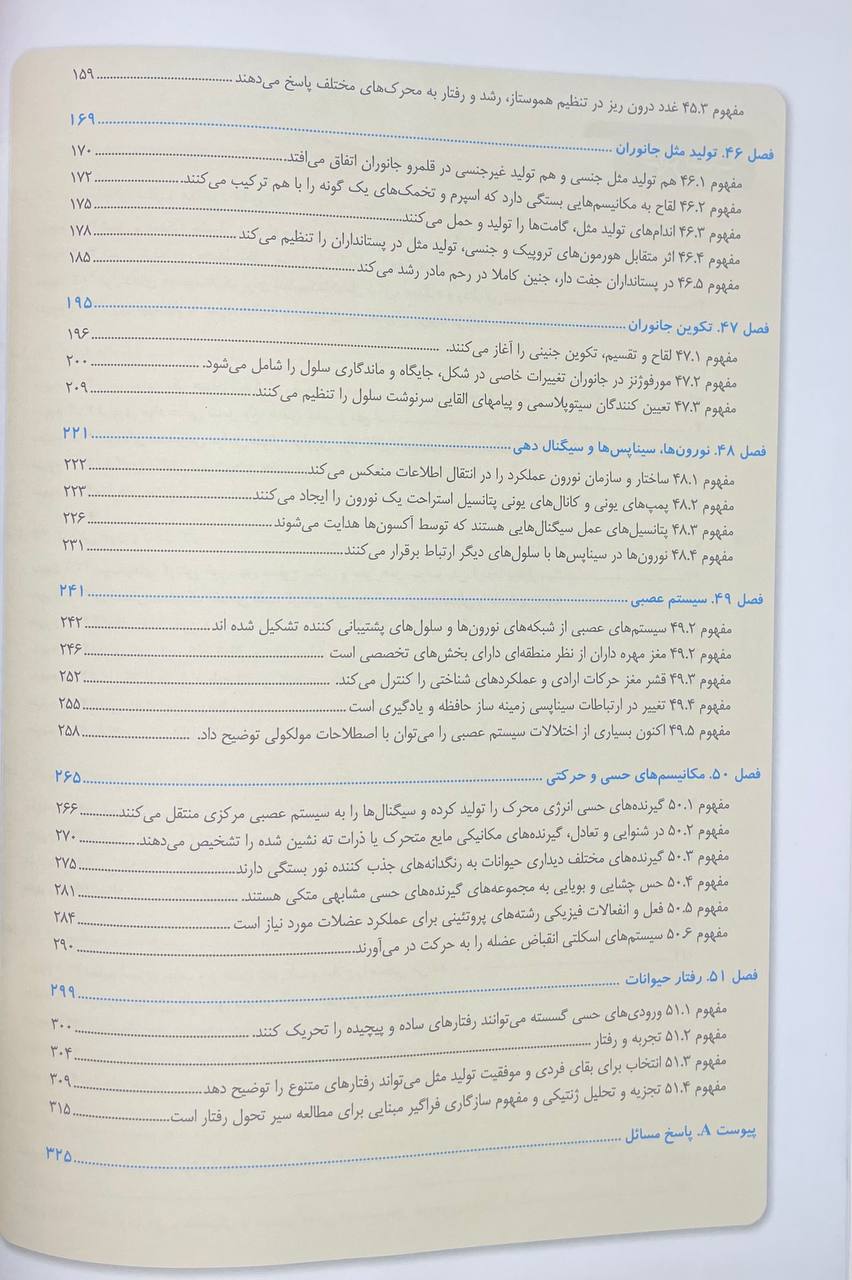 مفهوم ۴۵.۳ غدد درون ریز در تنظیم هموستاز، رشد و رفتار به محرک‌های مختلف پاسخ می‌دهند ۱۵۹
فصل ۴۶. تولید مثل جانوران ۱۶۹
مفهوم ۴۶.۱ هم تولید مثل جنسی و هم تولید غیرجنسی در قلمرو جانوران اتفاق می‌افتد ۱۷۰
مفهوم ۴۶.۲ لقاح به مکانیسم‌هایی بستگی دارد که اسپرم و تخمک‌های یک گونه را با هم ترکیب می‌کنند ۱۷۲
مفهوم ۴۶.۳ اندام‌های تولید مثل، گامت‌ها را تولید و حمل می‌کنند ۱۷۵
مفهوم ۴۶.۴ اثر متقابل هورمون‌های تروپیک و جنسی، تولید مثل در پستانداران را تنظیم می‌کند ۱۷۸
مفهوم ۴۶.۵ در پستانداران جفت دار، جنین کاملا در رحم مادر رشد می‌کند ۱۸۵
فصل ۴۷. تکوین جانوران ۱۹۵
مفهوم ۴۷.۱ لقاح و تقسیم، تکوین جنینی را آغاز می‌کنند. ۱۹۶
مفهوم ۴۷.۲ مورفوژنز در جانوران تغییرات خاصی در شکل، جایگاه و ماندگاری سلول را شامل می‌شود. ۲۰۰
مفهوم ۴۷.۳ تعیین کنندگان سیتوپلاسمی و پیامهای القایی سرنوشت سلول را تنظیم می‌کنند. ۲۰۹
فصل ۴۸. نورون‌ها، سیناپس‌ها و سیگنال دهی ۲۲۱
مفهوم ۴۸.۱ ساختار و سازمان نورون عملکرد را در انتقال اطلاعات منعکس می‌کند ۲۲۲
مفهوم ۴۸.۲ پمپ‌های یونی و کانال‌های یونی پتانسیل استراحت یک نورون را ایجاد می‌کنند ۲۲۳
مفهوم ۴۸.۳ پتانسیل‌های عمل سیگنال‌هایی هستند که توسط آکسون‌ها هدایت می‌شوند ۲۲۶
مفهوم ۴۸.۴ نورون‌ها در سیناپس‌ها با سلول‌های دیگر ارتباط برقرار می‌کنند ۲۳۱
فصل ۴۹. سیستم عصبی ۲۴۱
مفهوم ۴۹.۲ سیستم‌های عصبی از شبکه‌های نورون‌ها و سلول‌های پشتیبانی کننده تشکیل شده اند ۲۴۲
مفهوم ۴۹.۲ مغز مهره داران از نظر منطقه‌ای دارای بخش‌های تخصصی است ۲۴۶
مفهوم ۴۹.۳ قشر مغز حرکات ارادی و عملکردهای شناختی را کنترل می‌کند. ۲۵۲
مفهوم ۴۹.۴ تغییر در ارتباطات سیناپسی زمینه ساز حافظه و یادگیری است ۲۵۵
مفهوم ۴۹.۵ اکنون بسیاری از اختلالات سیستم عصبی را می‌توان با اصطلاحات مولکولی توضیح داد. ۲۵۸
فصل ۵۰. مکانیسم‌های حسی و حرکتی ۲۶۵
مفهوم ۵۰.۱ گیرنده‌های حسی انرژی محرک را تولید کرده و سیگنال‌ها را به سیستم عصبی مرکزی منتقل می‌کنند ۲۶۶
مفهوم ۵۰.۲ در شنوایی و تعادل، گیرنده‌های مکانیکی مایع متحرک یا ذرات ته نشین شده را تشخیص می‌دهند ۲۷۰
مفهوم ۵۰.۳ گیرنده‌های مختلف دیداری حیوانات به رنگدانه‌های جذب کننده نور بستگی دارند ۲۷۵
مفهوم ۵۰.۴ حس چشایی و بویایی به مجموعه‌های گیرنده‌های حسی مشابهی متکی هستند. ۲۸۱
مفهوم ۵۰.۵ فعل و انفعالات فیزیکی رشته‌های پروتئینی برای عملکرد عضلات مورد نیاز است ۲۸۴
مفهوم ۵۰.۶ سیستم‌های اسکلتی انقباض عضله را به حرکت در می‌آورند ۲۹۰
فصل ۵۱. رفتار حیوانات ۲۹۹
مفهوم ۵۱.۱ ورودی‌های حسی گسسته می‌توانند رفتارهای ساده و پیچیده را تحریک کنند. ۳۰۰
مفهوم ۵۱.۲ تجربه و رفتار ۳۰۴
مفهوم ۵۱.۳ انتخاب برای بقای فردی و موفقیت تولید مثل می‌تواند رفتارهای متنوع را توضیح دهد ۳۰۹
مفهوم ۵۱.۴ تجزیه و تحلیل ژنتیکی و مفهوم سازگاری فراگیر مبنایی برای مطالعه سیر تحول رفتار است ۳۱۵
پیوست A. پاسخ مسائل ۳۲۵